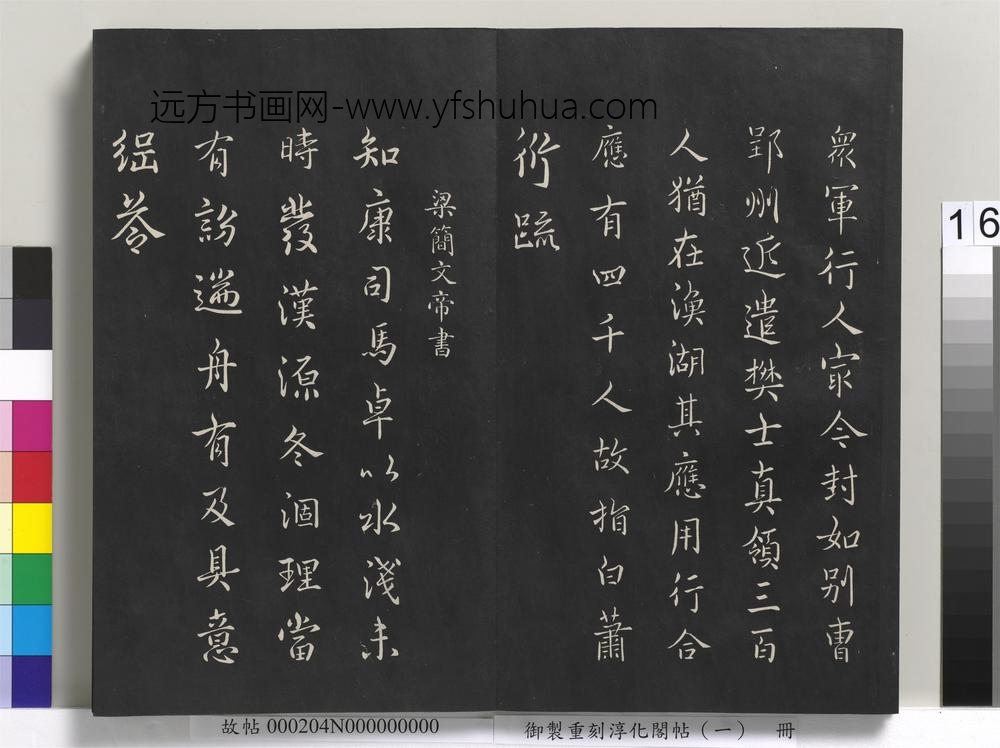 远方书画网-www.yfshuhua.com
眾軍行人家令封如别曹
郢州近遣樊士真領三百
人猶在渙湖其應用行合
應有四千人故指白蕭
衍疏
梁簡文帝書
知康司馬卓以水淺未
時發漢源冬涸理當
有訪遄舟有及具意
綱答
16
故帖 000204N000000000
御製重刻淳化閣帖（一） 冊